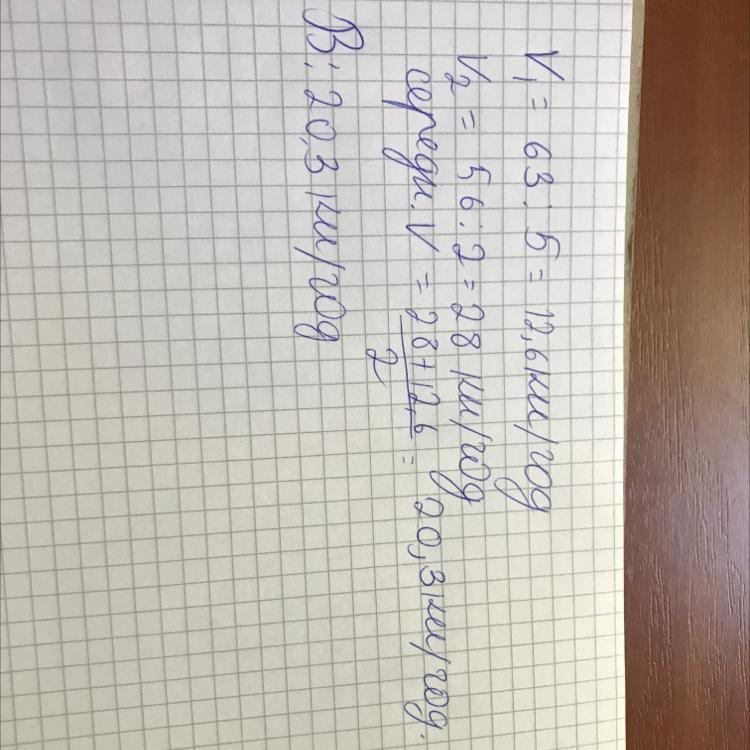 V₁ = 63 : 5 = 12,6 км/год
V₂ = 56 : 2 = 28 км/год
середн. V = 28+12,6 / 2 = 20,3 км/год.
В: 20,3 км/год